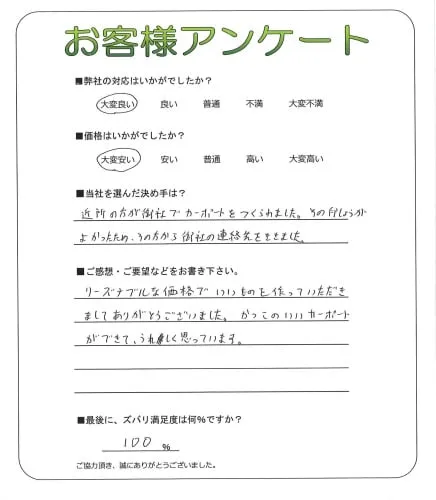 お客様アンケート
■弊社の対応はいかがでしたか？
大変良い 良い 普通 不満 大変不満
■価格はいかがでしたか？
大変安い 安い 普通 高い 大変高い
■当社を選んだ決め手は？
近所の方が御社でカーポートをつくられました。その
よかったため、その方から御社の連絡先をききました。
■ご感想・ご要望などをお書き下さい。
リーズナブルな価格でいいものを作っていただき
ましてありがとうございました。かっこのいいカーポート
ができて、うれしく思っています。
■最後に、ズバリ満足度は何％ですか？
100 ％
ご協力頂き、誠にありがとうございました。